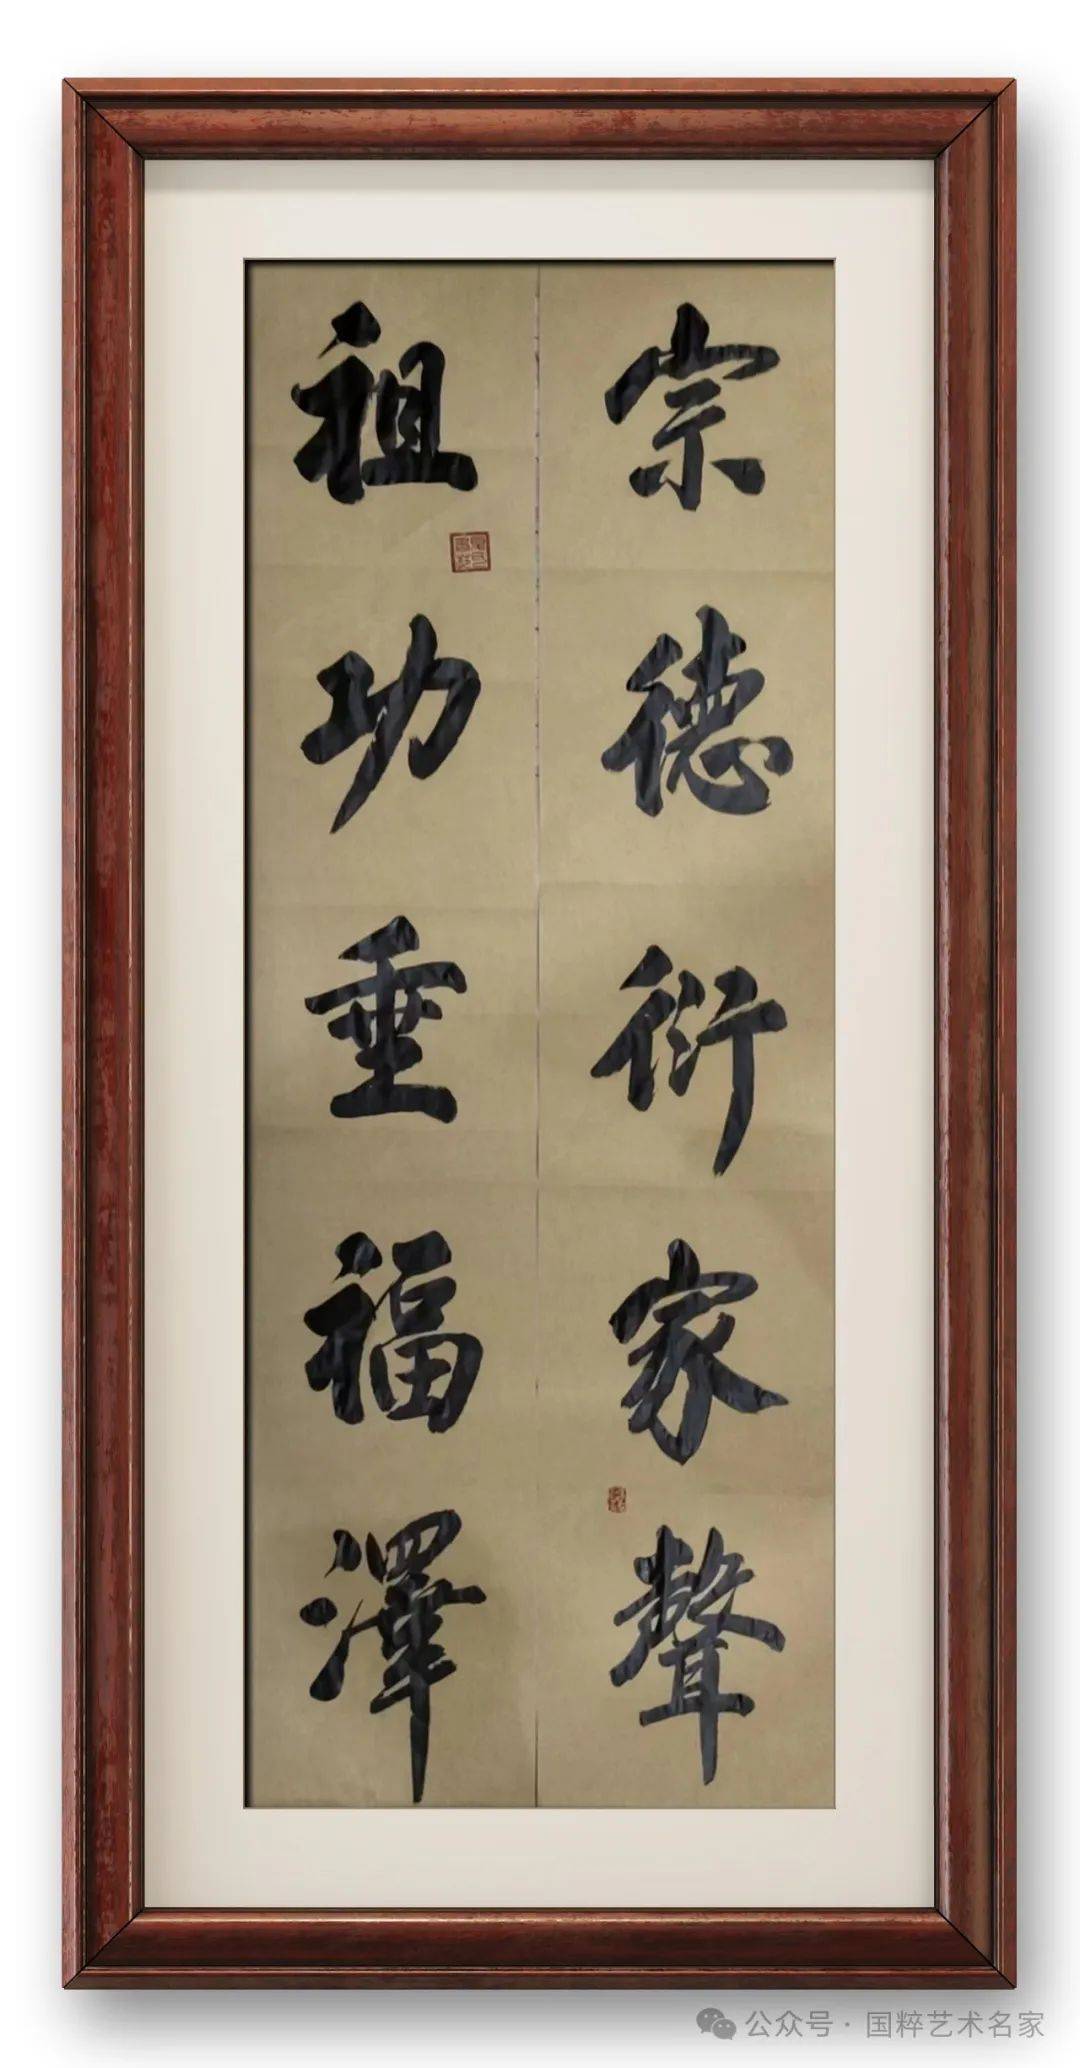 宗德衍家聲
祖功垂福澤
公众号·国粹艺术名家